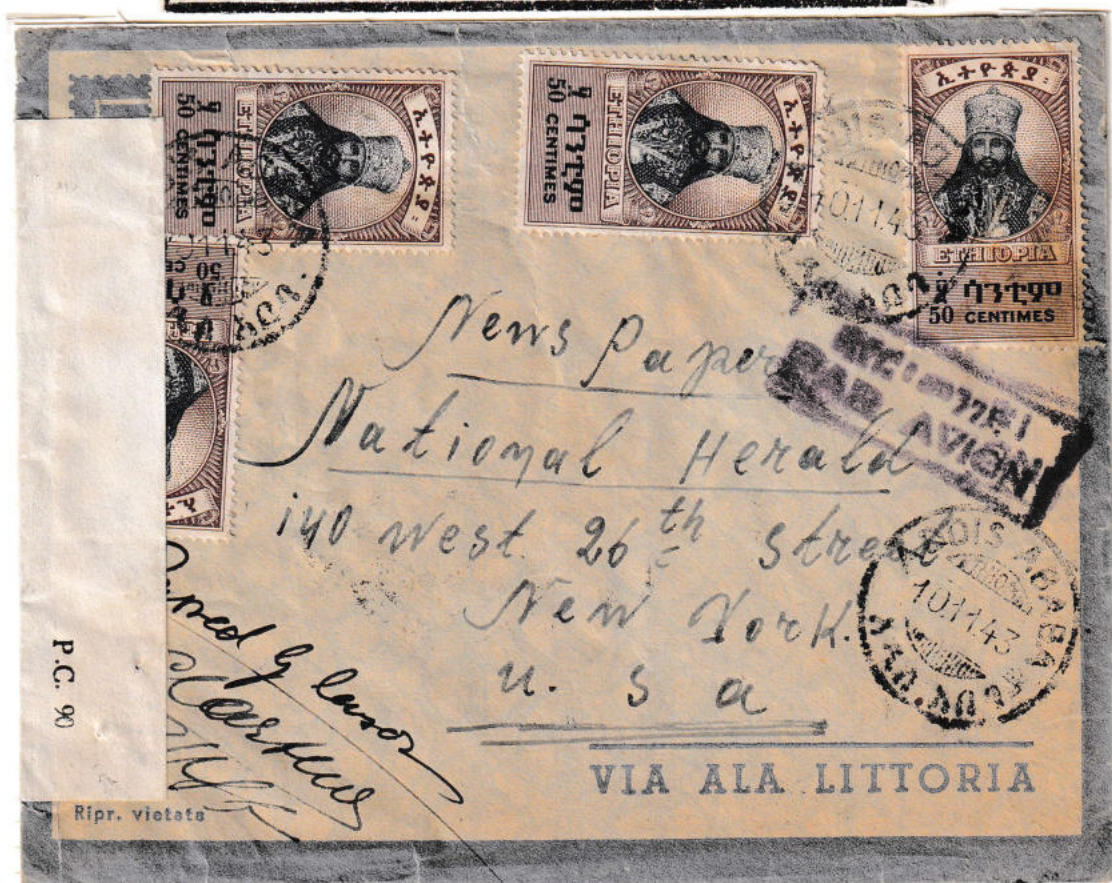 ኢትዮጵያ፡
ETHIOPIA
፶ ሳንቲም
50 CENTIMES
ኢትዮጵያ፡
ETHIOPIA
፶ ሳንቲም
50 CENTIMES
ኢትዮጵያ፡
ETHIOPIA
፶ ሳንቲም
50 CENTIMES
50
News Paper
National Herald
140 West 26th Street
New York.
U. S a
PAR AVION
ADDIS ABABA
10.11.43
አዲስ አበባ
P.C. 90
by Censor
VIA ALA LITTORIA
Ripr. vietata